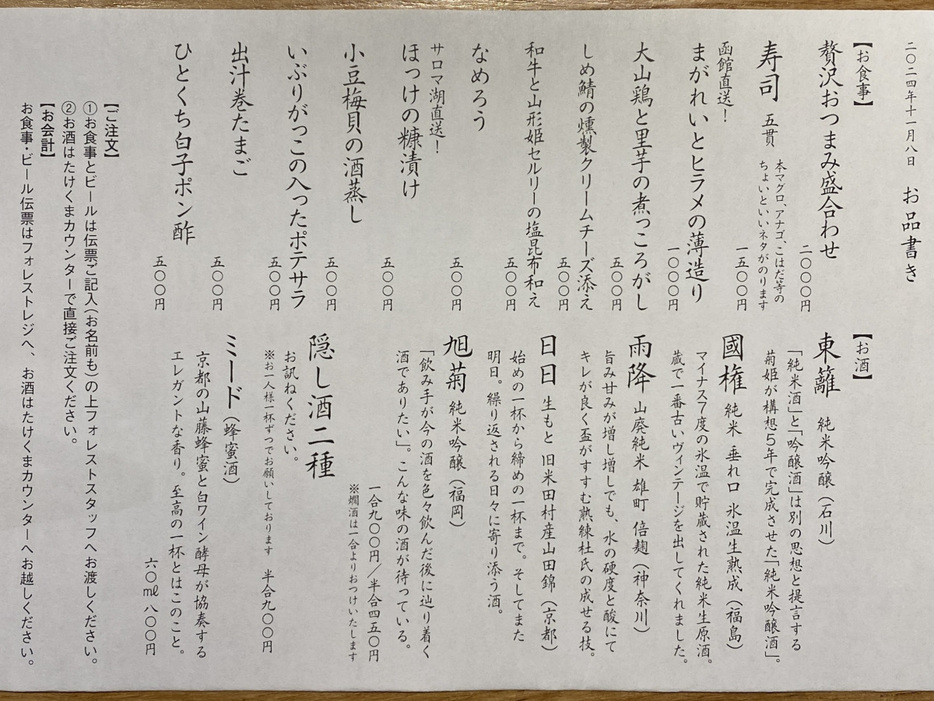 二〇二四年十一月八日 お品書き
【お食事】
贅沢おつまみ盛合わせ
二〇〇〇円
寿司 五貫 本マグロ、アナゴ、こはだ等の
ちょいといいネタがのります
一五〇〇円
函館直送！
まがれいとヒラメの薄造り
一〇〇〇円
大山鶏と里芋の煮っころがし
五〇〇円
しめ鯖の燻製クリームチーズ添え
五〇〇円
和牛と山形姫セルリーの塩昆布和え
五〇〇円
なめろう
五〇〇円
サロマ湖直送！
ほっけの糠漬け
五〇〇円
小豆梅貝の酒蒸し
いぶりがっこの入ったポテサラ
五〇〇円
出汁巻たまご
五〇〇円
ひとくち白子ポン酢
五〇〇円
【お酒】
東籬 純米吟醸（石川）
「純米酒」と「吟醸酒」は別の思想と提言する
菊姫が構想５年で完成させた「純米吟醸酒」。
國権 純米 垂れ口 氷温生熟成（福島）
マイナス７度の氷温で貯蔵された純米生原酒。
蔵で一番古いヴィンテージを出してくれました。
雨降 山廃純米 雄町 倍麹（神奈川）
旨み甘みが増し増しでも、水の硬度と酸にて
キレが良く盃がすすむ熟練杜氏の成せる技。
日日 生もと 旧米田村産山田錦（京都）
始めの一杯から締めの一杯まで。そしてまた
明日。繰り返される日々に寄り添う酒。
旭菊 純米吟醸（福岡）
「飲み手が今の酒を色々飲んだ後に辿り着く
酒でありたい」。こんな味の酒が待っている。
一合九〇〇円／半合四五〇円
※燗酒は一合よりおつけいたします
隠し酒二種
お訊ねください。
※お一人様一杯ずつでお願いしております 半合九〇〇円
ミード（蜂蜜酒）
京都の山藤蜂蜜と白ワイン酵母が協奏する
エレガントな香り。至高の一杯とはこのこと。
六〇㎖ 八〇〇円
【ご注文】
①お食事とビールは伝票ご記入（お名前も）の上フォレストスタッフへお渡しください。
②お酒はたけくまカウンターで直接ご注文ください。
【お会計】
お食事・ビール伝票はフォレストレジへ、お酒はたけくまカウンターへお越しください。